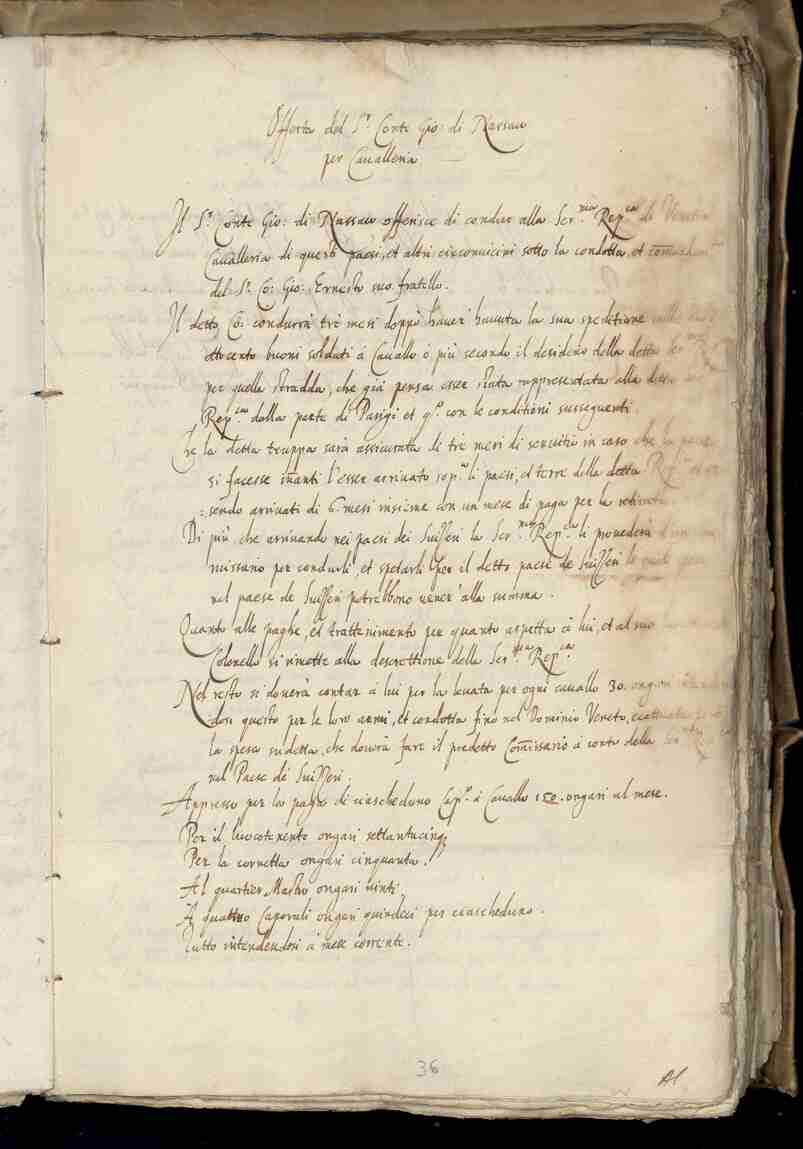 Offerta del S.r Conte Gio: di Nassau
per Cavalleria
Il S.r Conte Gio: di Nassau offerisce di condur alla Ser.ma Rep.ca di Venetia
Cavalleria di questi paesi, et altri circonvicini sotto la condotta, et comando
del S.r Co: Gio: Ernesto suo fratello.
Il detto Co: condurrà tre mesi doppò haver havuta la sua speditione
ottocento buoni soldati à Cavallo ò più secondo il desiderio della detta Ser.ma
per quella stradda, che già pensa esser stata rappresentata alla detta
Rep.ca dalla parte di Parigi et q.sto con le conditioni susseguenti.
Che la detta truppa sarà assicurata di tre mesi di servitù in caso che la pace
si facesse inanti l'esser arrivato sop.a li paesi, et terre della detta Rep.ca et es
=sendo arrivati di 6. mesi insieme con un mese di paga per la retirata
Di più che arrivando nei paesi dei Suisseri la Ser.ma Rep.ca li provederà d'un
missario per condurli, et spesarli per il detto paese de Suisseri le quali
nel paese de Suisseri potrebbono venir' alla summa.
Quanto alle paghe, et trattenimento per quanto aspetta à lui, et al suo
Colonello si rimette alla descrettione della Ser.ma Rep.ca
Nel resto si doverà contar à lui per la levata per ogni cavallo 30. ongari
dosi questo per le loro armi, et condotta fino nel Dominio Veneto,
la spesa sudetta, che dovrà fare il predetto Comissario à conto della Ser.ma Rep.ca
nel Paese dè Suisseri.
Appresso per la paga di ciascheduno Cap.o à Cavallo 150. ongari al mese.
Per il luocotenente ongari settantacinq;
Per la cornetta ongari cinquanta.
Al quartier Mastro ongari vinti
A quattro Caporali ongari quindeci per ciascheduno.
Tutto intendendosi à mese corrente.
36
Al